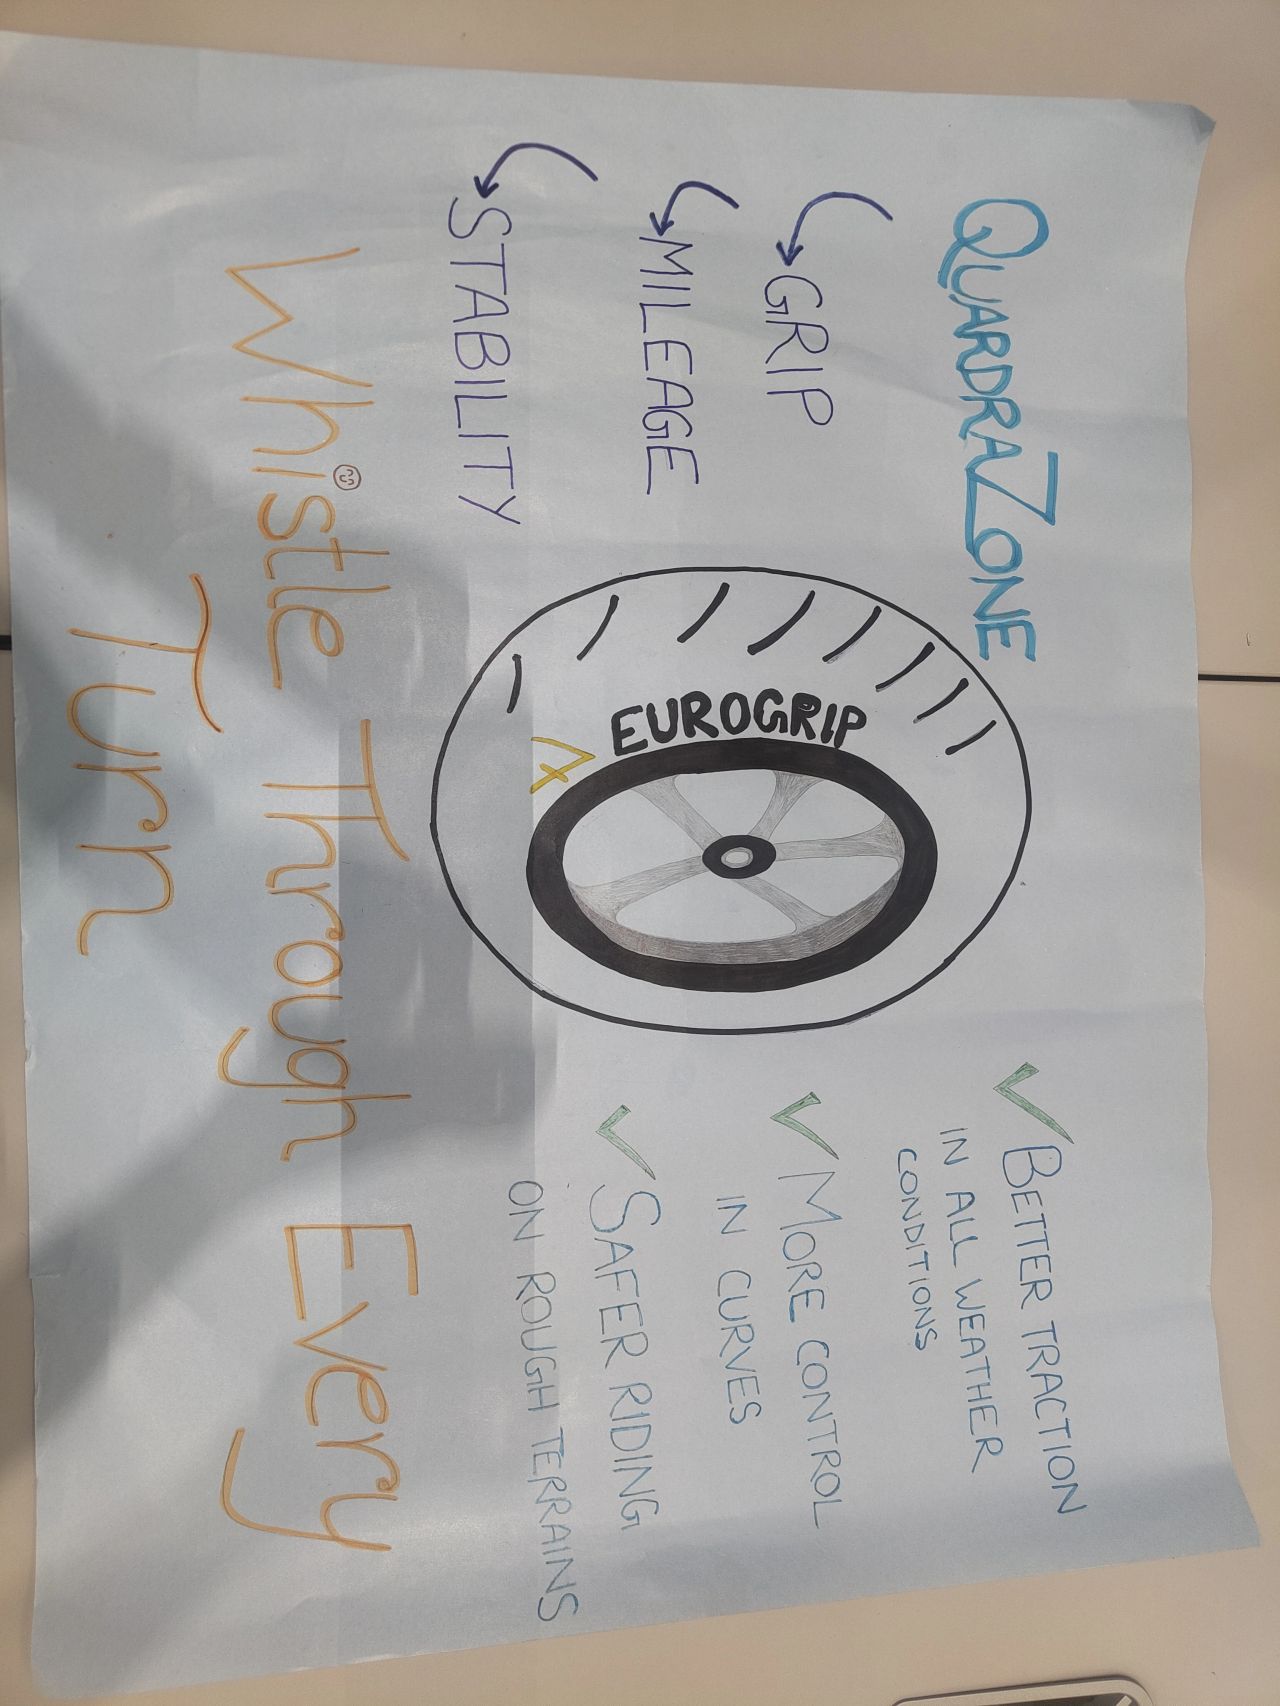 QUARDRAZONE
GRIP
MILEAGE
STABILITY
EUROGRIP
BETTER TRACTION
IN ALL WEATHER
CONDITIONS
MORE CONTROL
IN CURVES
SAFER RIDING
ON ROUGH TERRAINS
Whistle Through Every
Turn